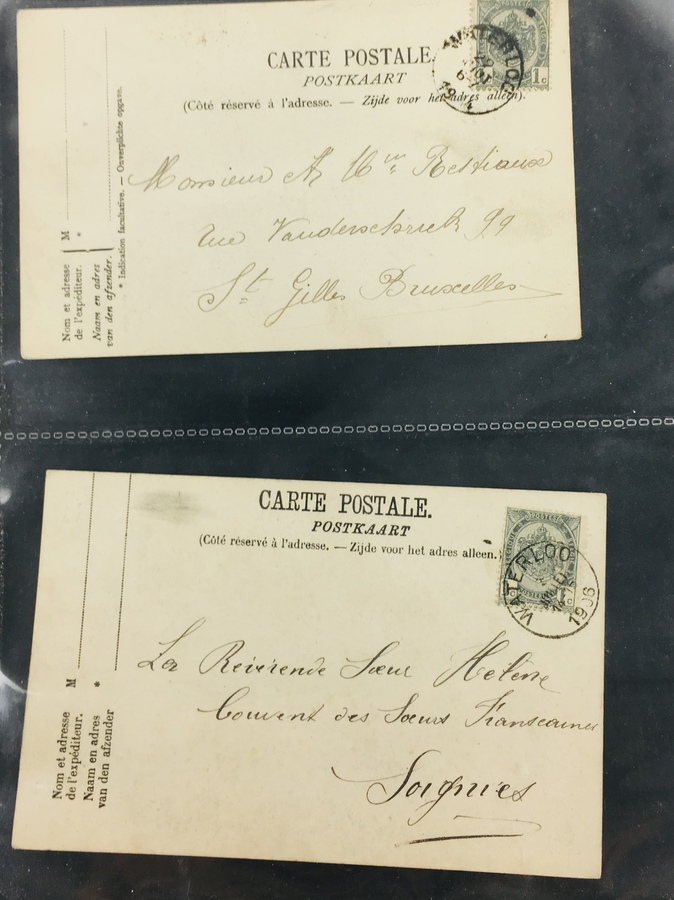 CARTE POSTALE.
POSTKAART
(Côté réservé à l'adresse. — Zijde voor het adres alleen).
WATERLOO
1c
Monsieur
Rue 99
St Gilles Bruxelles
Nom et adresse
de l'expéditeur.
Naam en adres
van den afzender.
M
*
* Indication facultative. — Onverplichte opgave.
CARTE POSTALE.
POSTKAART
(Côté réservé à l'adresse. — Zijde voor het adres alleen.)
WATERLOO
1906
La Révérende Sœur Hélène
Couvent des Sœurs
Soignies
Nom et adresse
de l'expéditeur.
Naam en adres
van den afzender
M
*